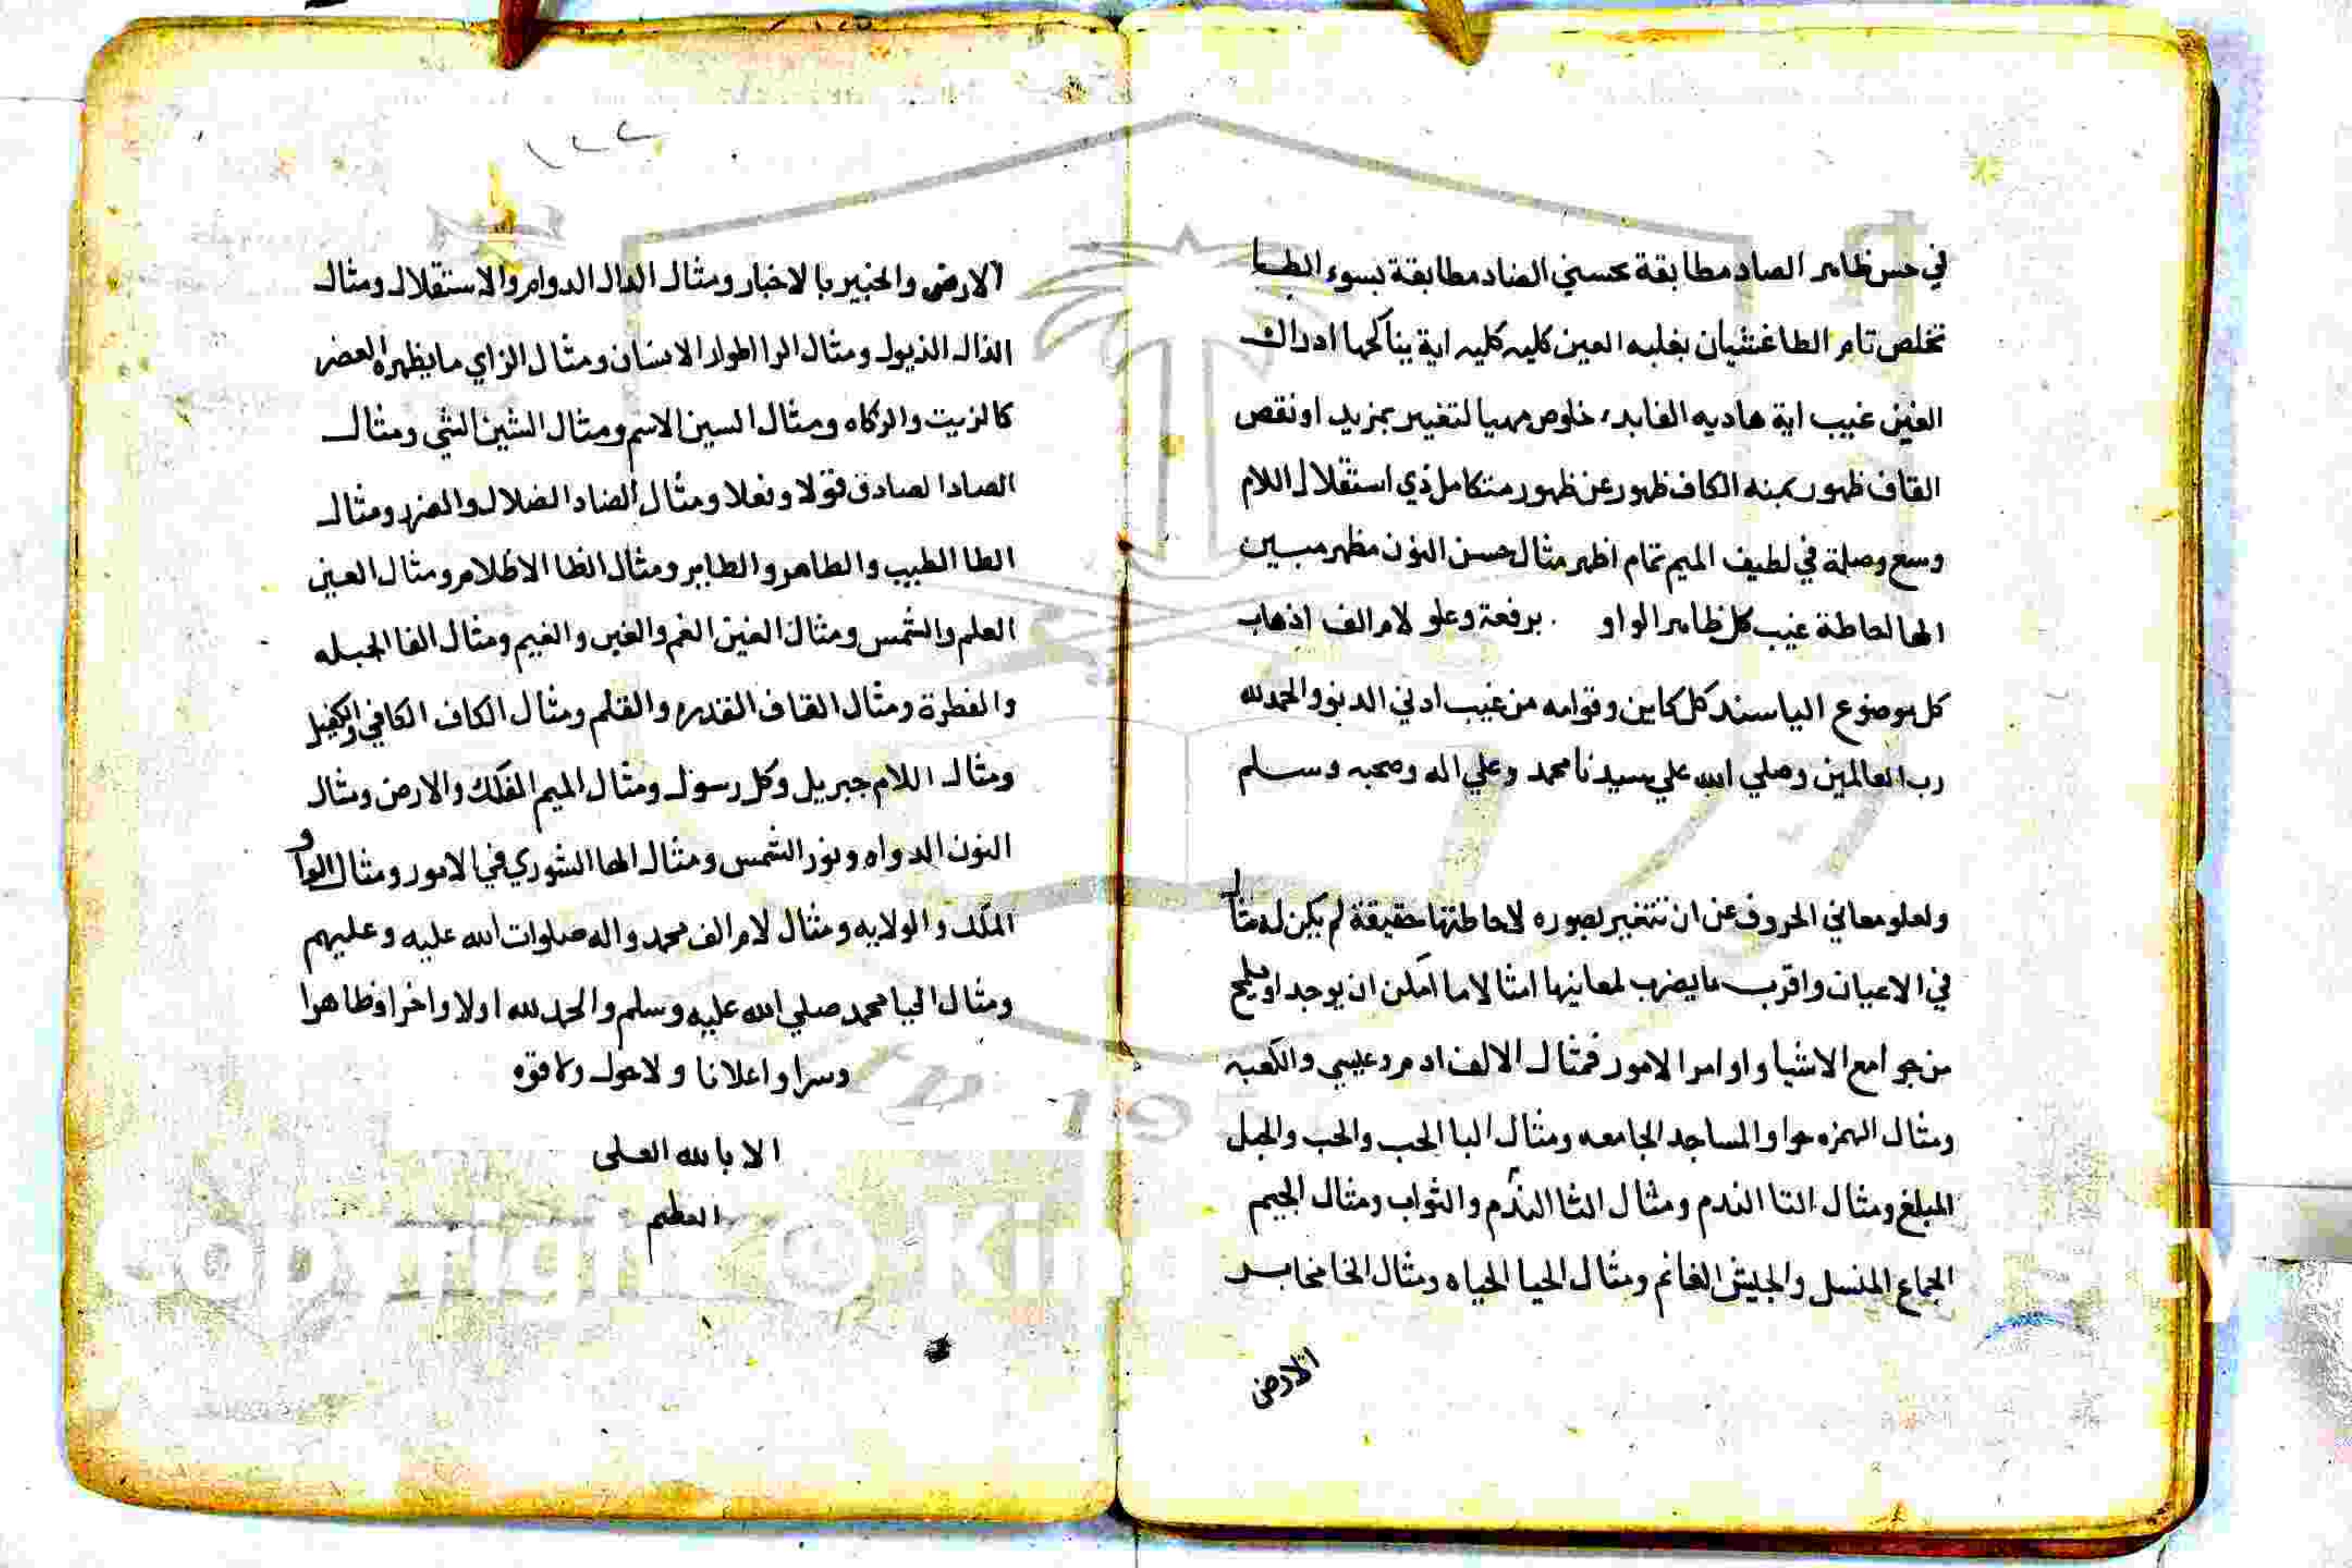 في حس ظاهر الصاد مطابقة بحسني الضاد مطابقة بسوء الطا
تخلص تام الظا غشيان بغلبه العين كليه كليه اية يناكحها ادراك
الغين غيب اية هاديه الفا خلوص مهيا لتغيير بمزيد او نقص
القاف ظهور الكاف ظهور عن ظهور متكامل ذي استقلال اللام
وسع وصلة في لطيف الميم تمام اظهر مثال حسن النون مظهر مبين
الها احاطة غيب كل ظاهر الواو برفعة وعلو لام الف اذهاب
كل موضوع اليا سند كل كاين وقوامه من غيب ادني الدنو والحمد لله
رب العالمين وصلي الله علي سيدنا محمد وعلي اله وصحبه وسلم
ولعلو معاني الحروف عن ان تتغير لصوره لاحاطتها حقيقة لم يكن له مثال
في الاعيان واقرب ما يضرب لمعانيها امثالا ما امكن ان يوجد او يلمح
من جوامع الاشيا واوامر الامور فمثال الالف ادم وعيسي والكعبه
ومثال الهمزه حوا والمساجد الجامعه ومثال البا الحب والحب والجبل
المبلغ ومثال التا الندم ومثال الثا الندم والثواب ومثال الجيم
الجماع المنسل والجيش الغانم ومثال الحيا الحياه ومثال الخا مخابر
الارض
١٢٢
الارض والخبير بالاخبار ومثال الدال الدوام والاستقلال ومثال
الذال الذبول ومثال الرا اطوار الانسان ومثال الزاي ما يظهره العصر
كالزيت والزكاه ومثال السين الاسم ومثال الشين الشي ومثال
الصاد الصادق قولا وفعلا ومثال الضاد الضلال والضر ومثال
الطا الطيب والطاهر والطاير ومثال الظا الاظلام ومثال العين
العلم والشمس ومثال الغين الغم والغين والغيم ومثال الفا الجبله
والفطرة ومثال القاف القدره والقلم ومثال الكاف الكافي والكفيل
ومثال اللام جبريل وكل رسول ومثال الميم الفلك والارض ومثال
النون الدواه ونور الشمس ومثال الها الشوري في الامور ومثال الواو
الملك والولايه ومثال لام الف محمد واله صلوات الله عليه وعليهم
ومثال اليا محمد صلي الله عليه وسلم والحمد لله اولا واخرا وظاهرا
وسرا واعلانا ولا حول ولا قوه
الا بالله العلى
العظيم